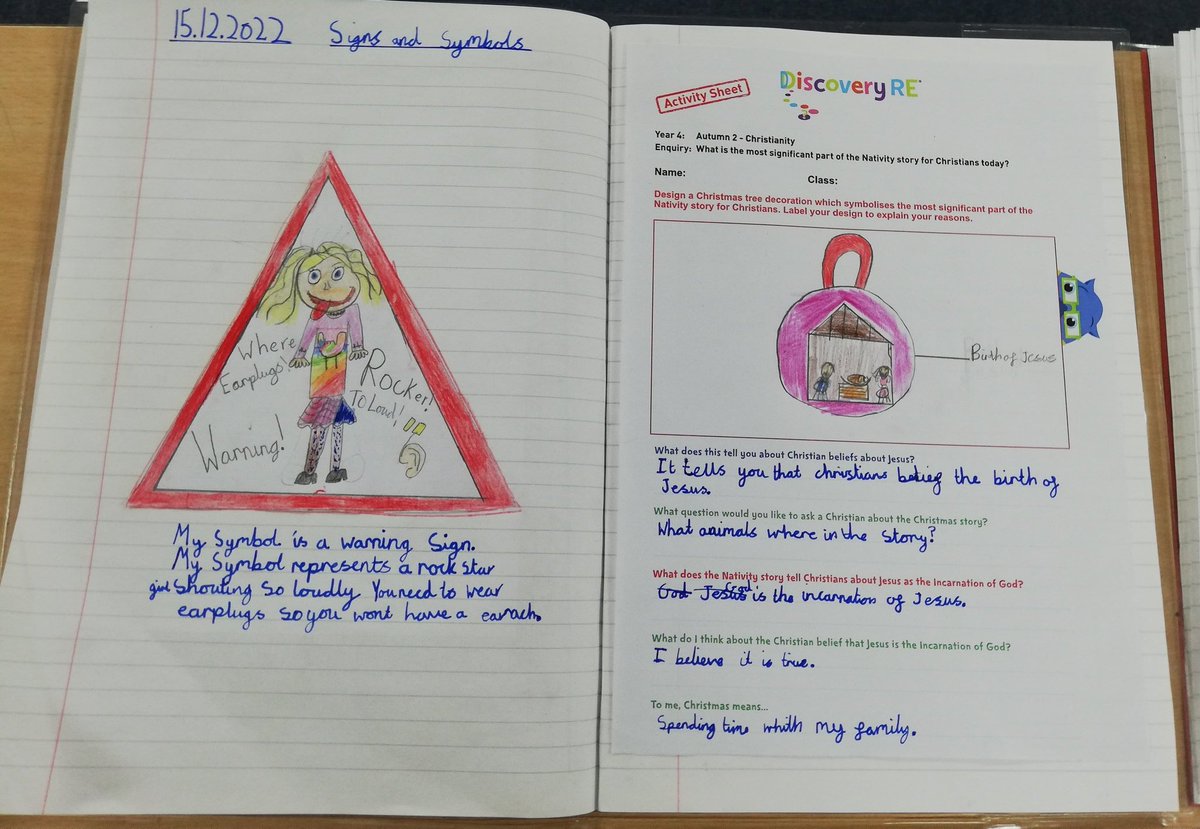 15.12.2022 Signs and Symbols
Where
Earplugs
Rocker!
To Loud!
Warning!
My Symbol is a warning Sign.
My Symbol represents a rock star
girl shouting so loudly You need to wear
earplugs so you wont have a earach.
Discovery RE
Activity Sheet
Year 4: Autumn 2 - Christianity
Enquiry: What is the most significant part of the Nativity story for Christians today?
Name: Class:
Design a Christmas tree decoration which symbolises the most significant part of the
Nativity story for Christians. Label your design to explain your reasons.
Birth of Jesus
What does this tell you about Christian beliefs about Jesus?
It tells you that christians the birth of
Jesus.
What question would you like to ask a Christian about the Christmas story?
What animals where in the story?
What does the Nativity story tell Christians about Jesus as the Incarnation of God?
God Jesus God is the incarnation of Jesus.
What do I think about the Christian belief that Jesus is the Incarnation of God?
I believe it is true.
To me, Christmas means...
Spending time whith my family.